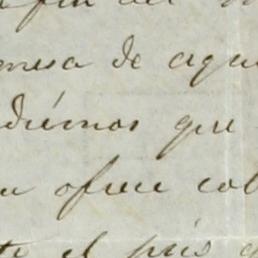 fin del
mesa de aqu
diémos que
ofrece col
te el país q